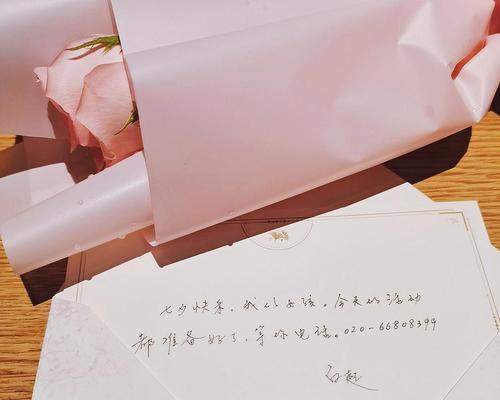 七夕快乐，我的女孩。今天的活动
都准备好了，等你电话。020-66808399
白起